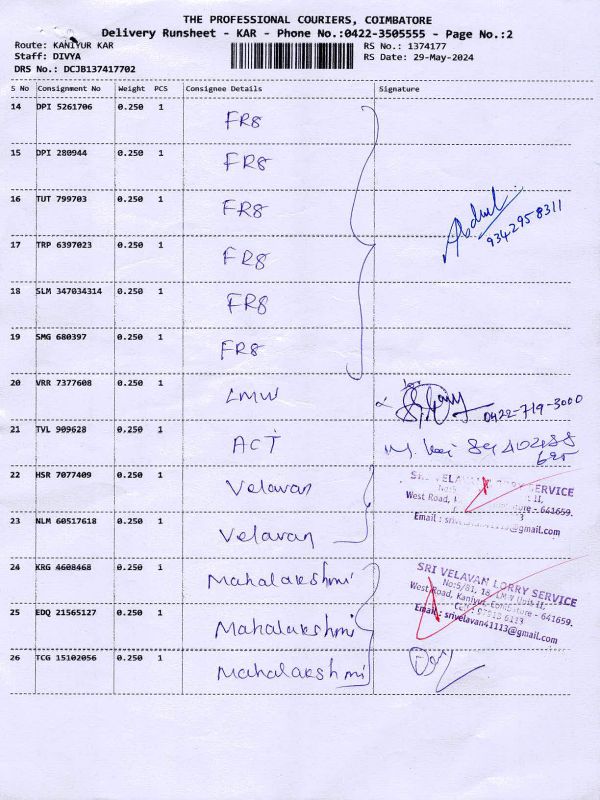 THE PROFESSIONAL COURIERS, COIMBATORE
Delivery Runsheet - KAR - Phone No.:0422-3505555 - Page No.:2
Route: KANIYUR KAR
Staff: DIVYA
DRS No.: DCJB137417702
RS No.: 1374177
RS Date: 29-May-2024
S No Consignment No Weight PCS Consignee Details Signature
14 DPI 5261706 0.250 1 FR8
15 DPI 280944 0.250 1 FR8
16 TUT 799703 0.250 1 FR8
Abdul
9342958311
17 TRP 6397023 0.250 1 FR8
18 SLM 347034314 0.250 1 FR8
19 SMG 680397 0.250 1 FR8
20 VRR 7377608 0.250 1 LMW 0422-719-3000
21 TVL 909628 0.250 1 ACT
22 HSR 7077409 0.250 1 Velavan
SRI VELAVAN LORRY SERVICE
West Road, Coimbatore - 641659.
Email : srivelavan41113@gmail.com
23 NLM 60517618 0.250 1 Velavan
24 KRG 4608468 0.250 1 Mahalakshmi
SRI VELAVAN LORRY SERVICE
No:5/81, 18, LMW Unit-II,
West Road, Kaniyur, Coimbatore - 641659.
Email : srivelavan41113@gmail.com
25 EDQ 21565127 0.250 1 Mahalakshmi
26 TCG 15102056 0.250 1 Mahalakshmi